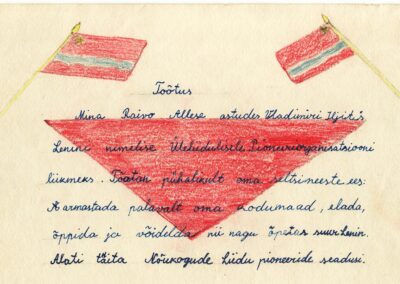 Tõotus
Mina Raivo Allese astudes Vladimiri Iljitš
Lenini nimelise Üleliidulisele Pioneeriorganisatsiooni
liikmeks. Tõotan pühalikult oma seltsimeeste ees:
armastada palavalt oma kodumaad, elada,
õppida ja võidelda nii nagu õpetas suur Lenin.
Alati täita Nõukogude Liidu pioneeride seadusi.